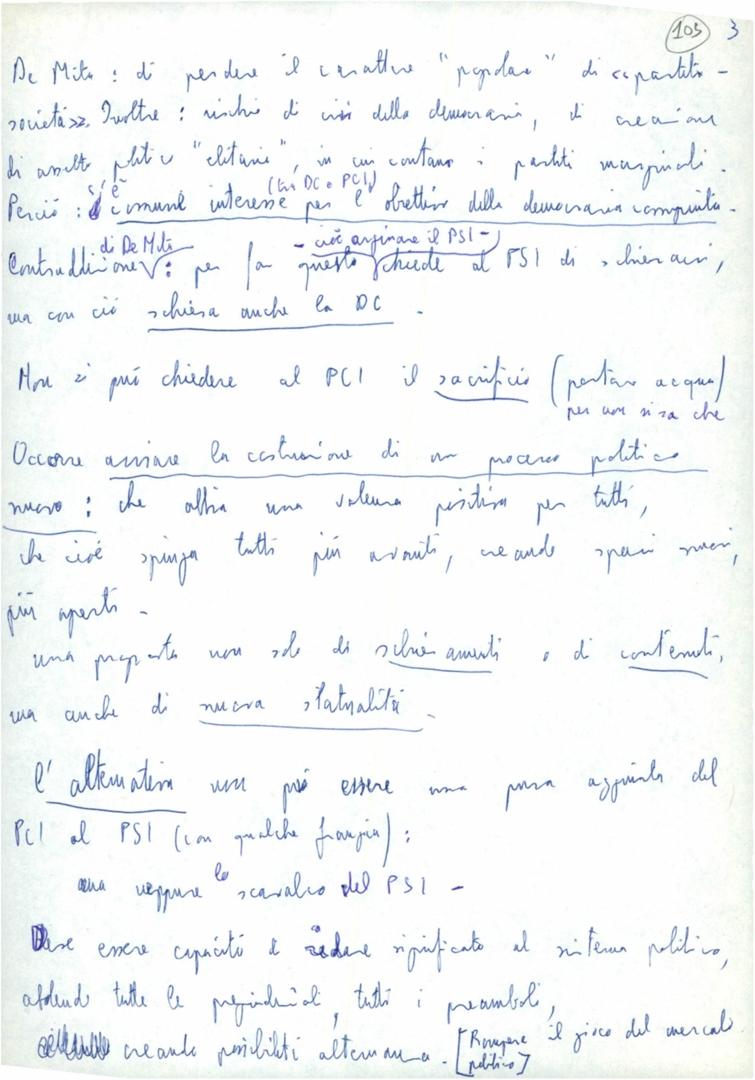 105 3
De Mita : di perdere il carattere "popolare" di «partito-
società». Inoltre : rischio di crisi della democrazia, di creazione
di assetto politico "elitario", in cui contano i partiti marginali.
Perciò : c'è comune interesse (tra DC e PCI) per l'obiettivo della democrazia compiuta.
Contraddizione di De Mita : per far questo - cioè arginare il PSI - chiede al PSI di schierarsi,
ma con ciò schiera anche la DC.
Non si può chiedere al PCI il sacrificio (portare acqua)
per non si sa che
Occorre avviare la costruzione di un processo politico
nuovo : che abbia una valenza positiva per tutti,
che cioè spinga tutti più avanti, creando spazi nuovi,
più aperti -
una proposta non solo di schieramenti o di contenuti,
ma anche di nuova statualità.
l'alternativa non può essere una pura aggiunta del
PCI al PSI (con qualche frangia) :
ma neppure lo scavalco del PSI -
Deve essere capacità di ridare significato al sistema politico,
abolendo tutte le pregiudiziali, tutti i preamboli,
creando possibilità alternanza. [Rompere il gioco del mercato
politico]